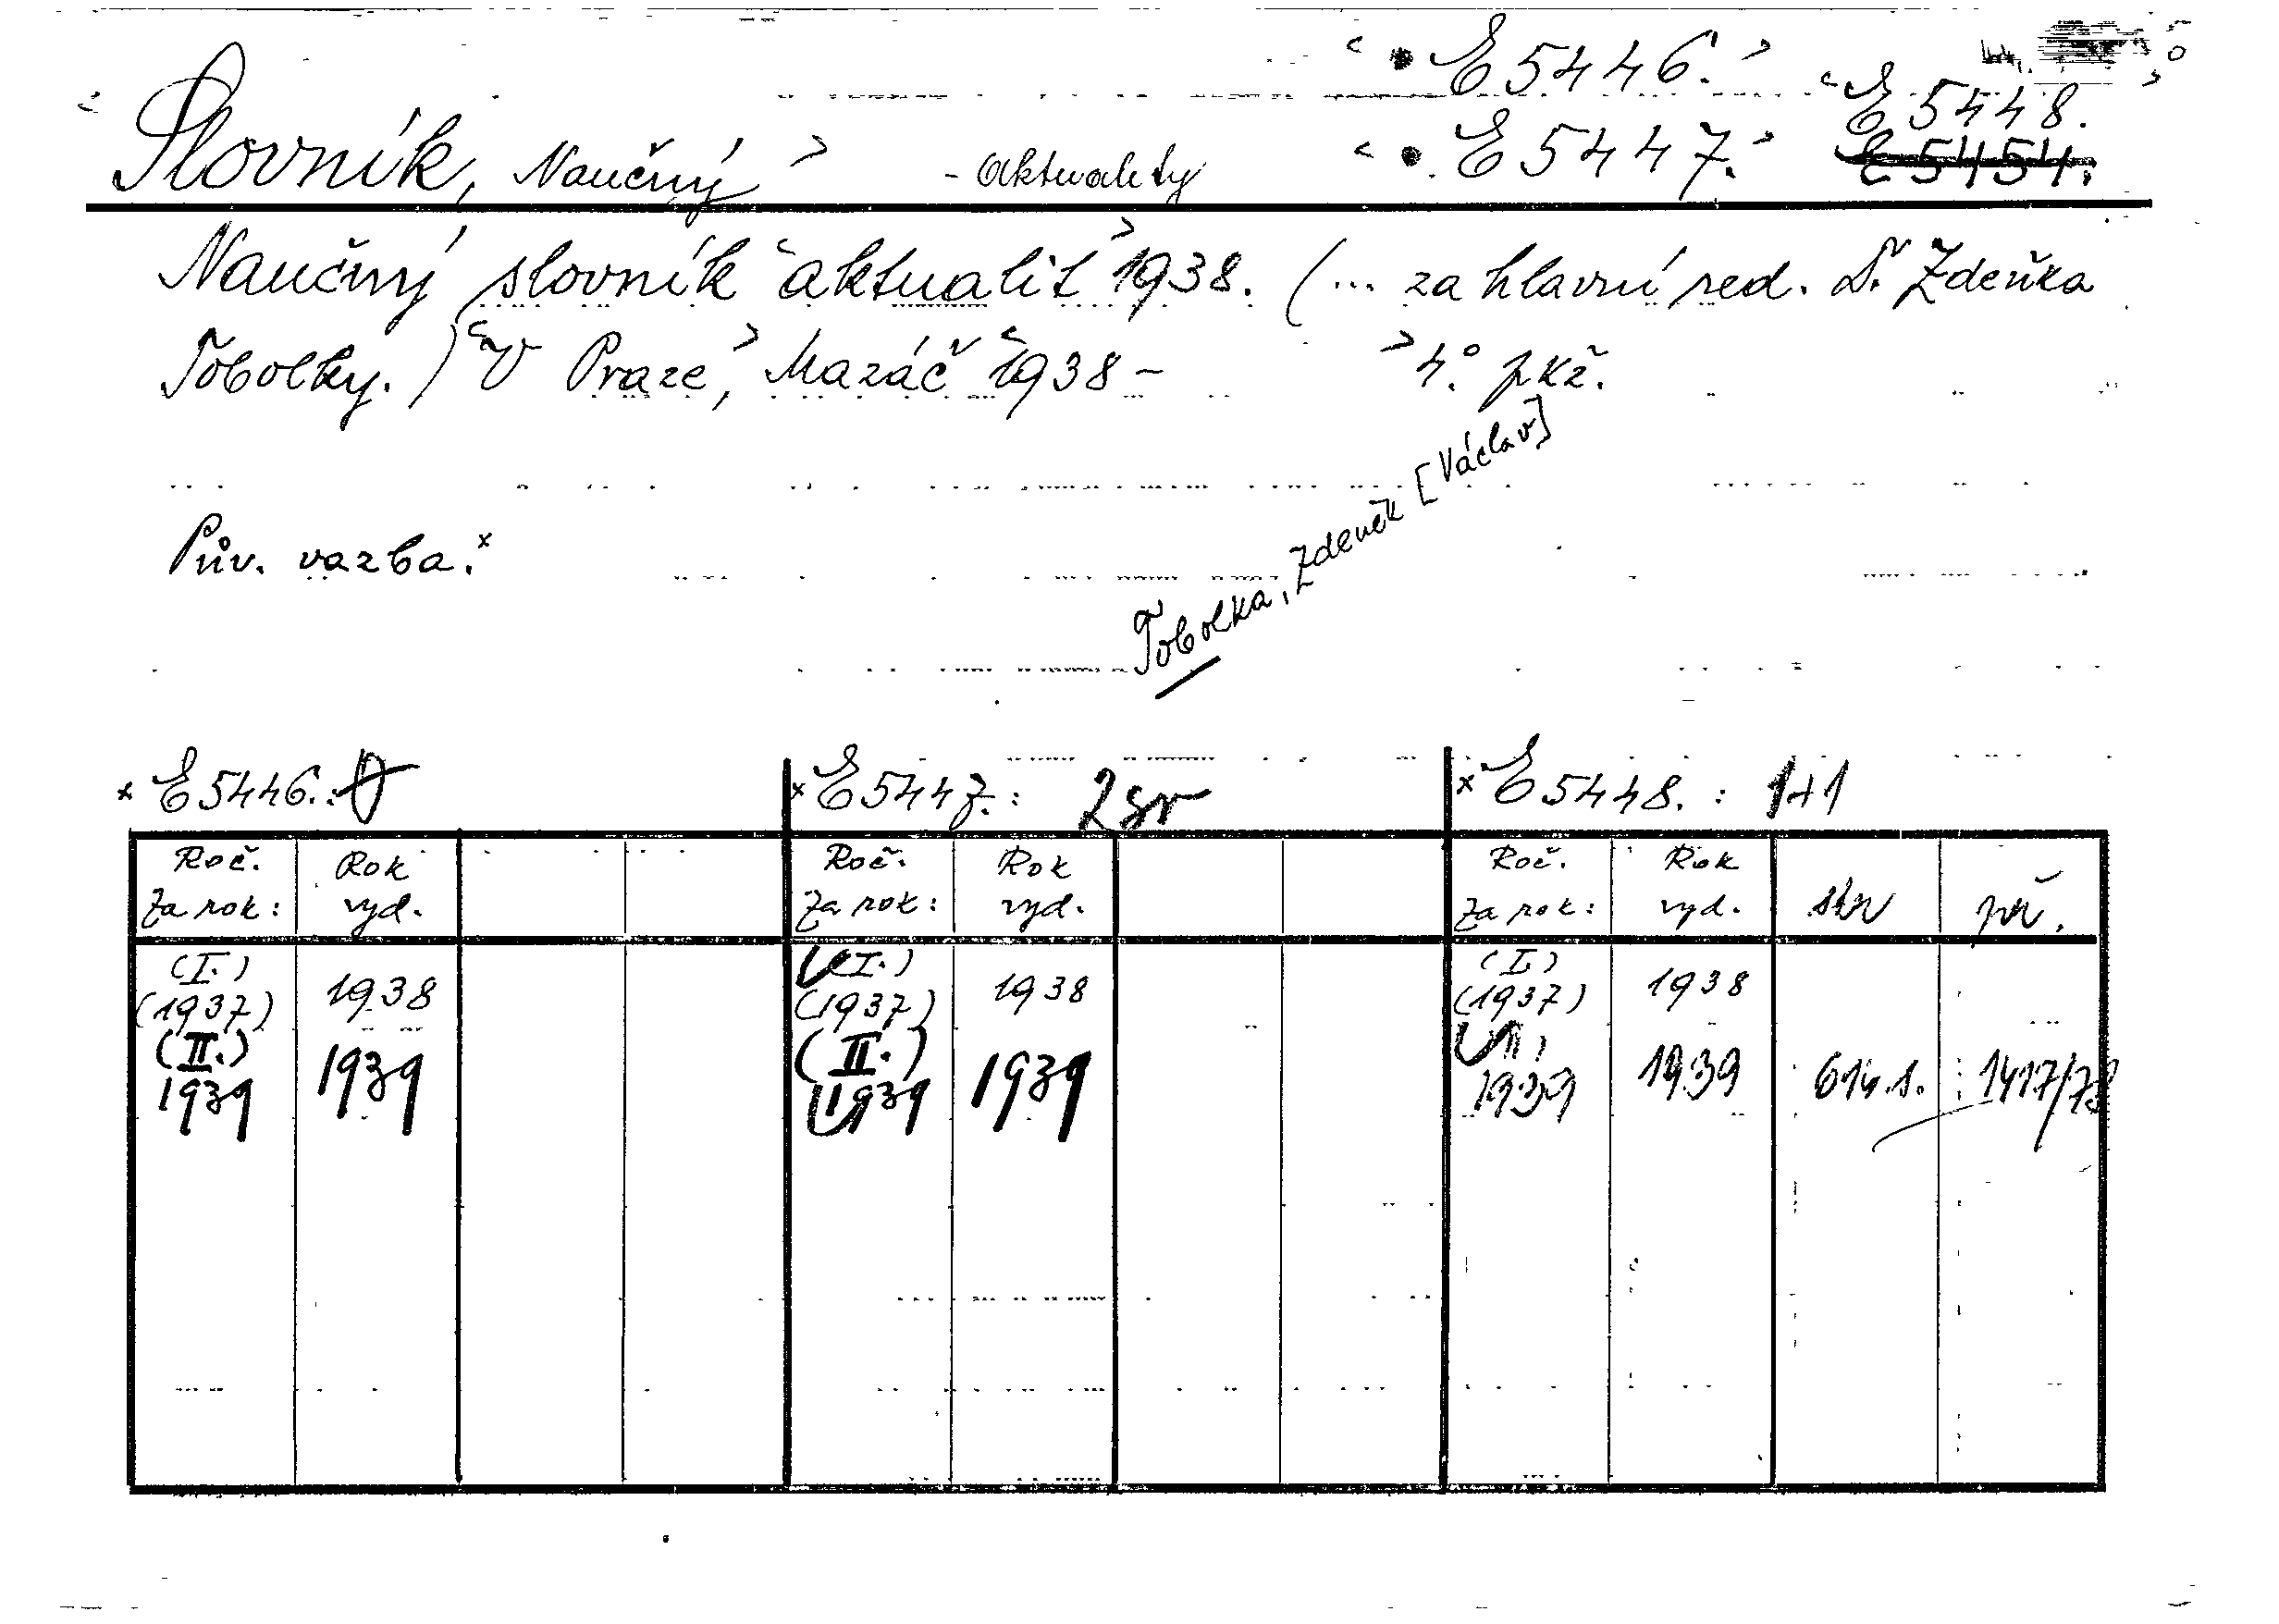 < • E 5446. >
< E 5448. >
< Slovník, Naučný > - Aktuality
< • E 5447. >
E 5454.
Naučný slovník < aktualit > 1938. (... za hlavní red. Dr. Zdeňka
Tobolky.) < V Praze, > Mazáč < 1938 - > 4.° pkž.
Tobolka, Zdeněk [Václav]
Pův. vazba. x
x E 5446. :
x E 5447. : 2 sv
x E 5448. : 1+1
Roč. Rok Roč. Rok Roč. Rok
za rok: vyd. za rok: vyd. za rok: vyd. str př.
(I.) (I.) (I.)
(1937) 1938 (1937) 1938 (1937) 1938
(II.) (II.) (II.)
1939 1939 1939 1939 1939 1939 614 s. 1417/73